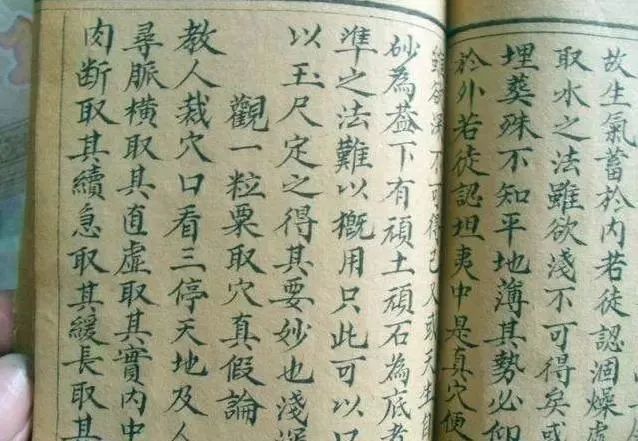 故生氣蓄於內若徒認涸燥
取水之法雖欲淺不可得矣或
埋葬殊不知平地薄其勢必仰
於外若徒認坦夷中是真穴便
欲深不可得已又或天生自
砂為葢下有頑土頑石為底者
準之法難以概用只此可以口
以玉尺定之得其要妙也淺深
觀一粒粟取穴真假論
教人裁穴口看三停天地及人
尋脈橫取其直虛取其實內中
肉断取其續急取其緩長取其